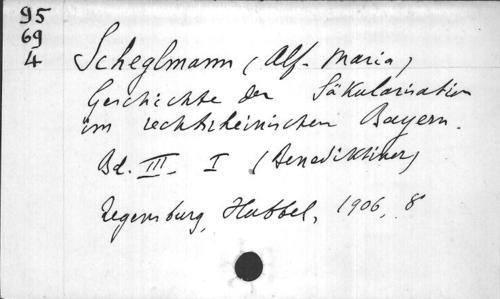 95
69
4
Scheglmann (Alf. Maria)
Geschichte der Säkularisation
im rechtsrheinischen Bayern.
Bd. III. I (Benediktiner)
Regensburg, Habbel, 1906, 8